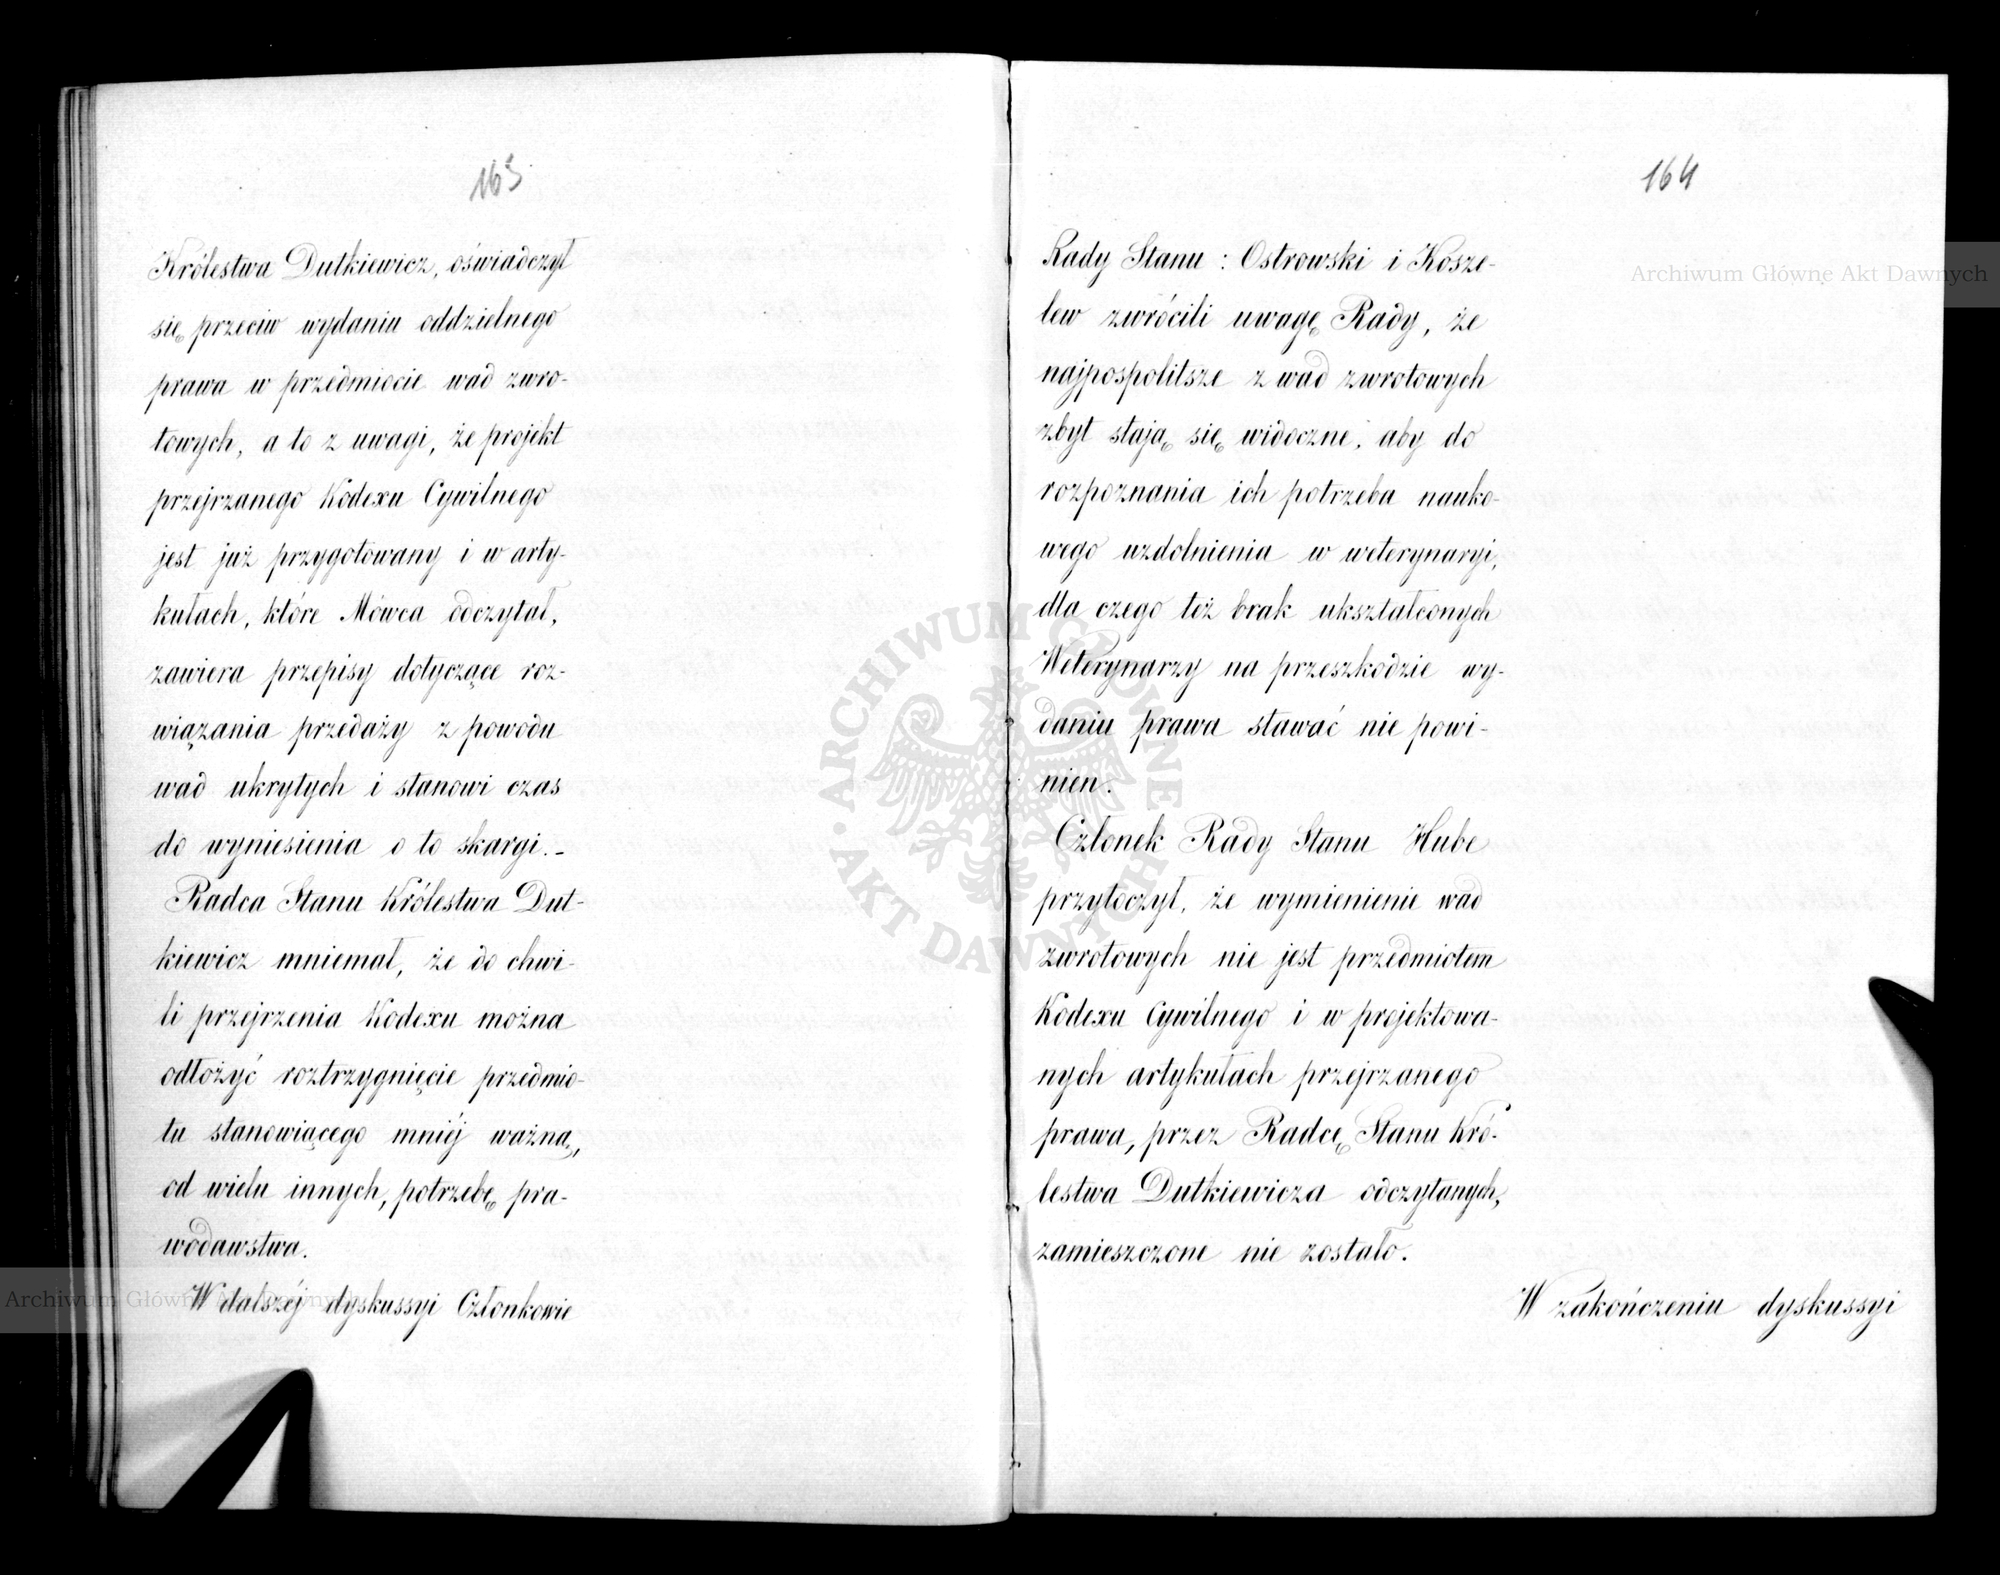 163
Królestwa Dutkiewicz, oświadczył
się przeciw wydaniu oddzielnego
prawa w przedmiocie wad zwro-
towych, a to z uwagi, że projekt
przejrzanego Kodexu Cywilnego
jest już przygotowany i w arty-
kułach, które Mówca odczytał,
zawiera przepisy dotyczące roz-
wiązania przedaży z powodu
wad ukrytych i stanowi czas
do wyniesienia o to skargi.-
Radca Stanu Królestwa Dut-
kiewicz mniemał, że do chwi-
li przejrzenia Kodexu można
odłożyć roztrzygnięcie przedmio-
tu stanowiącego mniéj ważną,
od wielu innych, potrzebę pra-
wodawstwa.
W dalszéj dyskussyi Członkowie
164
Rady Stanu: Ostrowski i Kosze-
lew zwrócili uwagę Rady, że
najpospolitsze z wad zwrotowych
zbyt stają się widoczne, aby do
rozpoznania ich potrzeba nauko-
wego uzdolnienia w weterynaryi,
dla czego też brak ukształconych
Weterynarzy na przeszkodzie wy-
daniu prawa stawać nie powi-
nien.
Członek Rady Stanu Hube
przytoczył, że wymienienie wad
zwrotowych nie jest przedmiotem
Kodexu Cywilnego i w projektowa-
nych artykułach przejrzanego
prawa, przez Radcę Stanu Kró-
lestwa Dutkiewicza odczytanych,
zamieszczone nie zostało.
W zakończeniu dyskussyi
Archiwum Główne Akt Dawnych
Archiwum Główne Akt Dawnych
ARCHIWUM GŁÓWNE
AKT DAWNYCH